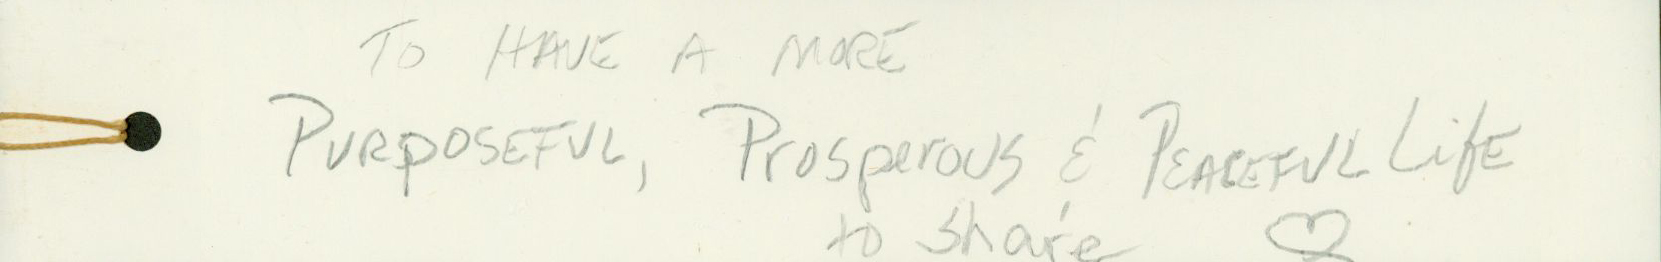 TO HAVE A MORE
PURPOSEFUL, Prosperous & PEACEFUL LifE
to share ♡